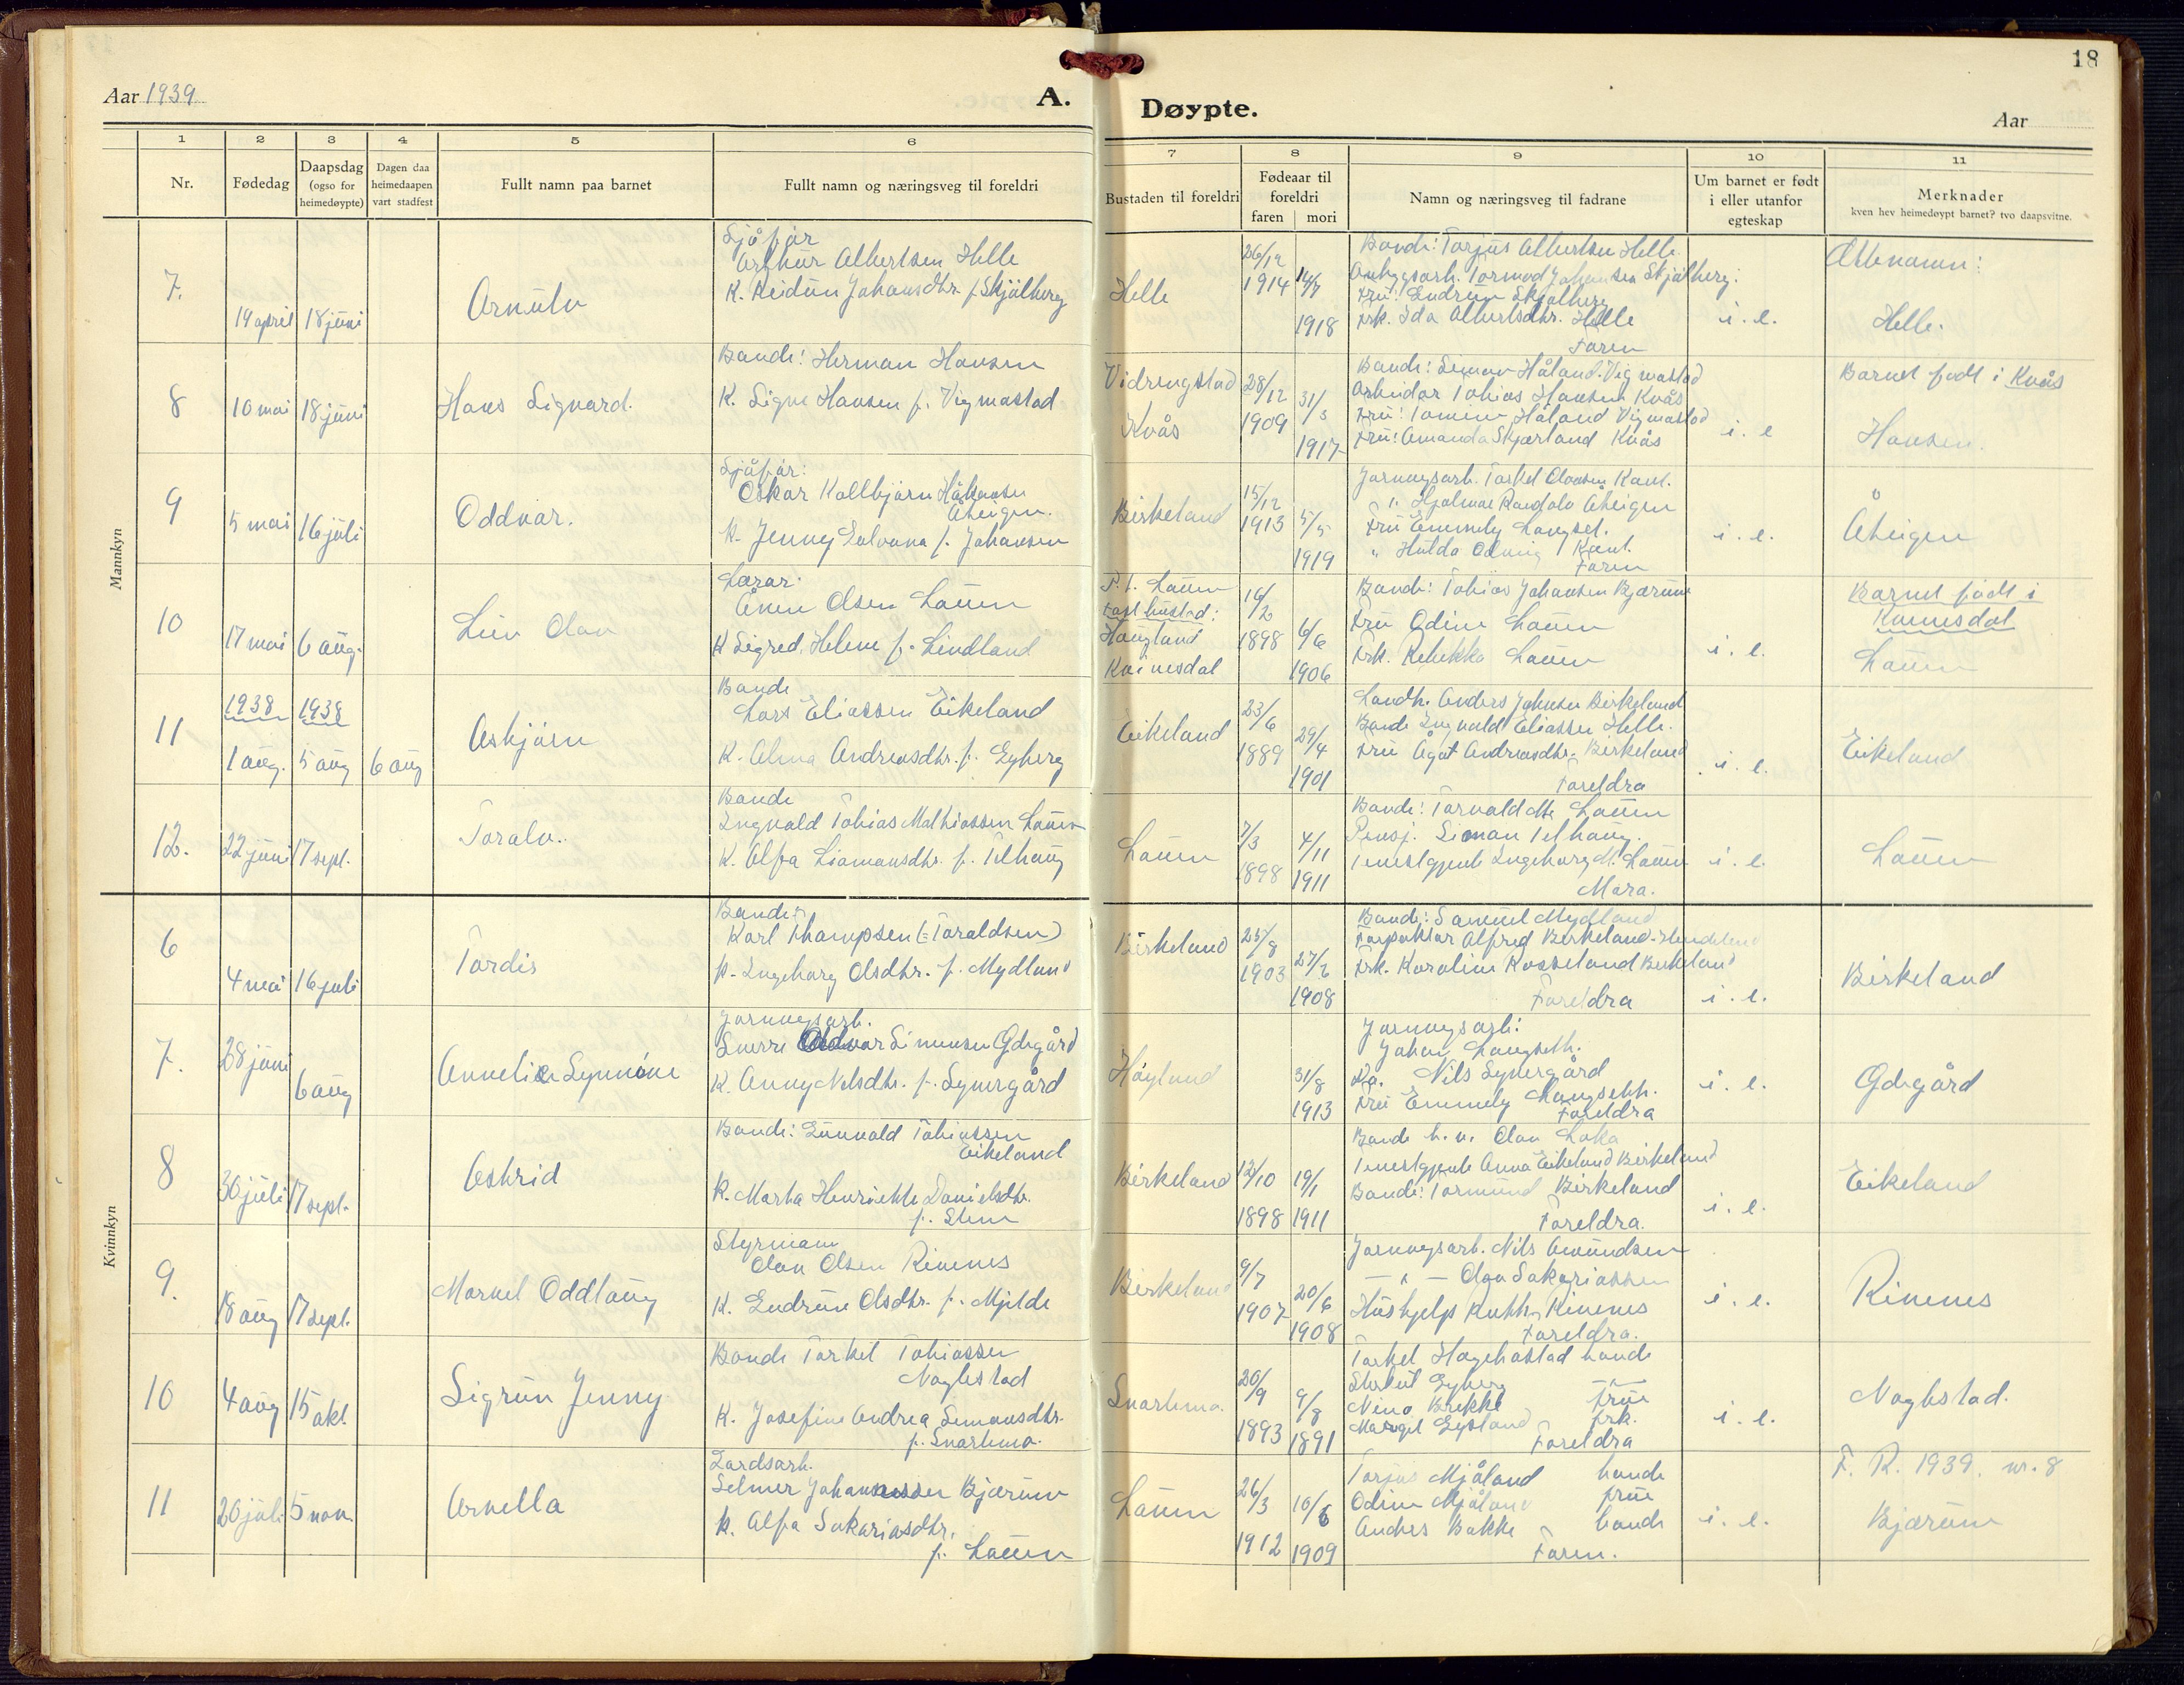 18
Aar 1939
A.
Døypte.
Aar
1 2 3 4 5 6
7 8 9 10 11
Nr.
Fødedag
Daapsdag
(ogso for
heimedøypte)
Dagen daa
heimedaapen
vart stadfest
Fullt namn paa barnet
Fullt namn og næringsveg til foreldri
Bustaden til foreldri
Fødeaar til
foreldri
faren mori
Namn og næringsveg til fadrane
Um barnet er født
i eller utanfor
egteskap
Merknader
kven hev heimedøypt barnet? tvo daapsvitne.
Mannkyn
7.
19 april
18 juni
Arnulv
Sjåfør
Arthur Albertsen Helle
K. Reidun Johansdtr. f. Skjølberg
Helle
26/12
1914
14/7
1918
Bonde: Torjus Albertsen Helle
Anleggsarb. Tormod Johansen Skjølberg:
Fru: Gudrun Skjølberg
Frk. Ida Albertsdtr. Helle
Faren
i. e.
Ættenamn:
Helle.
8
10 mai
18 juni
Hans Sigvard.
Bonde: Herman Hansen
K. Signe Hansen f. Vigmostad
Vidringstad
Kvås
28/12
1909
31/3
1917
Bonde: Simon Håland. Vigmostad
Arbeidar Tobias Hansen Kvås
Fru: Tomine Håland Vigmostad
Fru: Amanda Skjærland Kvås
i. e
Barnet født i Kvås
Hansen.
9
5 mai
16 juli
Oddvar.
Sjåfør:
Oskar Kallbjørn Håkonsen
Åheigen.
K. Jenny Galvana f. Johansen
Birkeland
15/12
1913
5/5
1919
Jarnvegsarb. Torkel Olavsen
" Hjalmar Randolv Åheigen
Fru Emmely Langset.
" Hulda Odveig
Faren
i. e.
Åheigen
10
17 mai
6 aug.
Liv Olav
Lærar.
Ånen Olsen Lauen
K Sigred Helene f. Lindland
P. t. Lauen
Fast bustad:
Haugland
Kvinesdal
16/2
1898
6/6
1906
Bonde: Tobias Johansen Bjærum
Fru Odine Lauen
Frk. Rebekka Lauen
i. e.
Barnet født i
Kvinesdal
Lauen
11
1938
1 aug.
1938
5 aug
6 aug
Asbjørn
Bonde
Lars Eliassen Eikeland
K. Alma Andreasdtr. f. Egeberg
Eikeland
23/6
1889
29/4
1901
Landh. Anders Johnsen Birkeland
Bonde Ingvald Eliassen Helle.
Fru Ågot Andreasdtr. Birkeland
Foreldra
i. e.
Eikeland
12.
22 juni
17 sept.
Toralv.
Bonde
Ingvald Tobias Mathiassen Lauen
K. Alfa Simonsdtr. f. Telhaug
Lauen
7/3
1898
4/11
1911
Bonde: Torvald Lauen
Pensj. Simon Telhaug.
Tenestgjente Ingeborg M. Lauen
Mora.
i. e.
Lauen
Kvinnkyn
6
4 mai
16 juli
Tordis
Bonde:
Karl Thompsen (= Toraldsen)
K. Ingeborg Olsdtr. f. Mydland
Birkeland
25/8
1903
27/2
1908
Bonde: Samuel Mydland
Forpaktar Alfred Birkeland
Frk. Karoline Rosseland Birkeland
Foreldra
i. e.
Birkeland
7.
28 juni
6 aug
Annelise Synnøve
Jarnvegsarb.
Sverre Oddvar Simonsen Ødegård
K. Anny Nilsdtr. f. Synergård
Høyland
31/8
1913
Jarnvegsarb:
Johan Langseth.
Ka. Nils Synergård
Fru Emmely Langseth.
Foreldra
i. e.
Ødegård
8
30 juli
17 sept.
Astrid
Bonde: Gunvald Tobiassen
Eikeland
K. Marta Henriette Danielsdtr.
f. Steen
Birkeland
12/10
1898
19/1
1911
Bonde h. v. Olav Loka
Tenestgjente Anna Eikeland Birkeland
Bonde: Tormund Birkeland
Foreldra.
i. e.
Eikeland
9.
18 aug
17 sept.
Marnel Oddlaug
Styrmann
Olav Olsen Rinenes
K. Gudrun Olsdtr. f. Mjelde
Birkeland
9/7
1907
20/6
1908
Jarnvegsarb. Nils Amundsen
— " — Olav Sakariassen
Hushjelp Ruth Rinenes
Foreldra.
i. e.
Rinenes
10
4 aug
15 okt.
Sigrun Jenny
Bonde Torkel Tobiassen
Naglestad
K. Josefine Andrea Simonsdtr.
f. Snartemo.
Snartemo.
20/9
1893
9/8
1891
Torkel Hægbostad bonde
Sterkel Egeberg — " —
Nina Brekke frue
Margit Egeland frk.
Foreldra
i. e.
Naglestad.
11
20 juli
5 nov.
Arnella
Gardsarb.
Selmer Johannessen Bjærum
K. Alfa Sakariasdtr.
f. Lauen
Lauen
26/3
1912
10/6
1909
Torjus Mjåland bonde
Odine Mjåland frue
Anders Bakke bonde
Faren.
i. e.
F. R. 1939. nr. 8
Bjærum